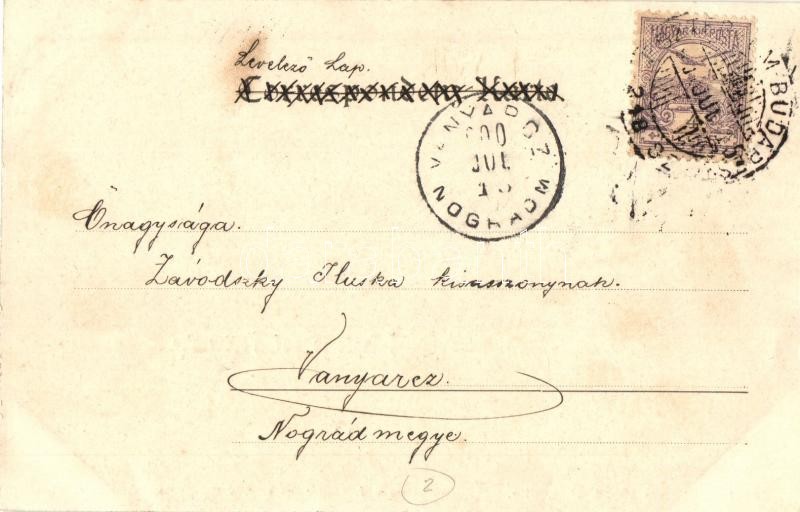 Levelező Lap.
Correspondenz-Karte
MAGYAR KIR. POSTA
BUDAPEST
JUL
VANYARCZ
900
JUL
NOGRADM
Önagysága.
Závodszky Iluska kisasszonynak.
Vanyarcz.
Nográdmegye.
2